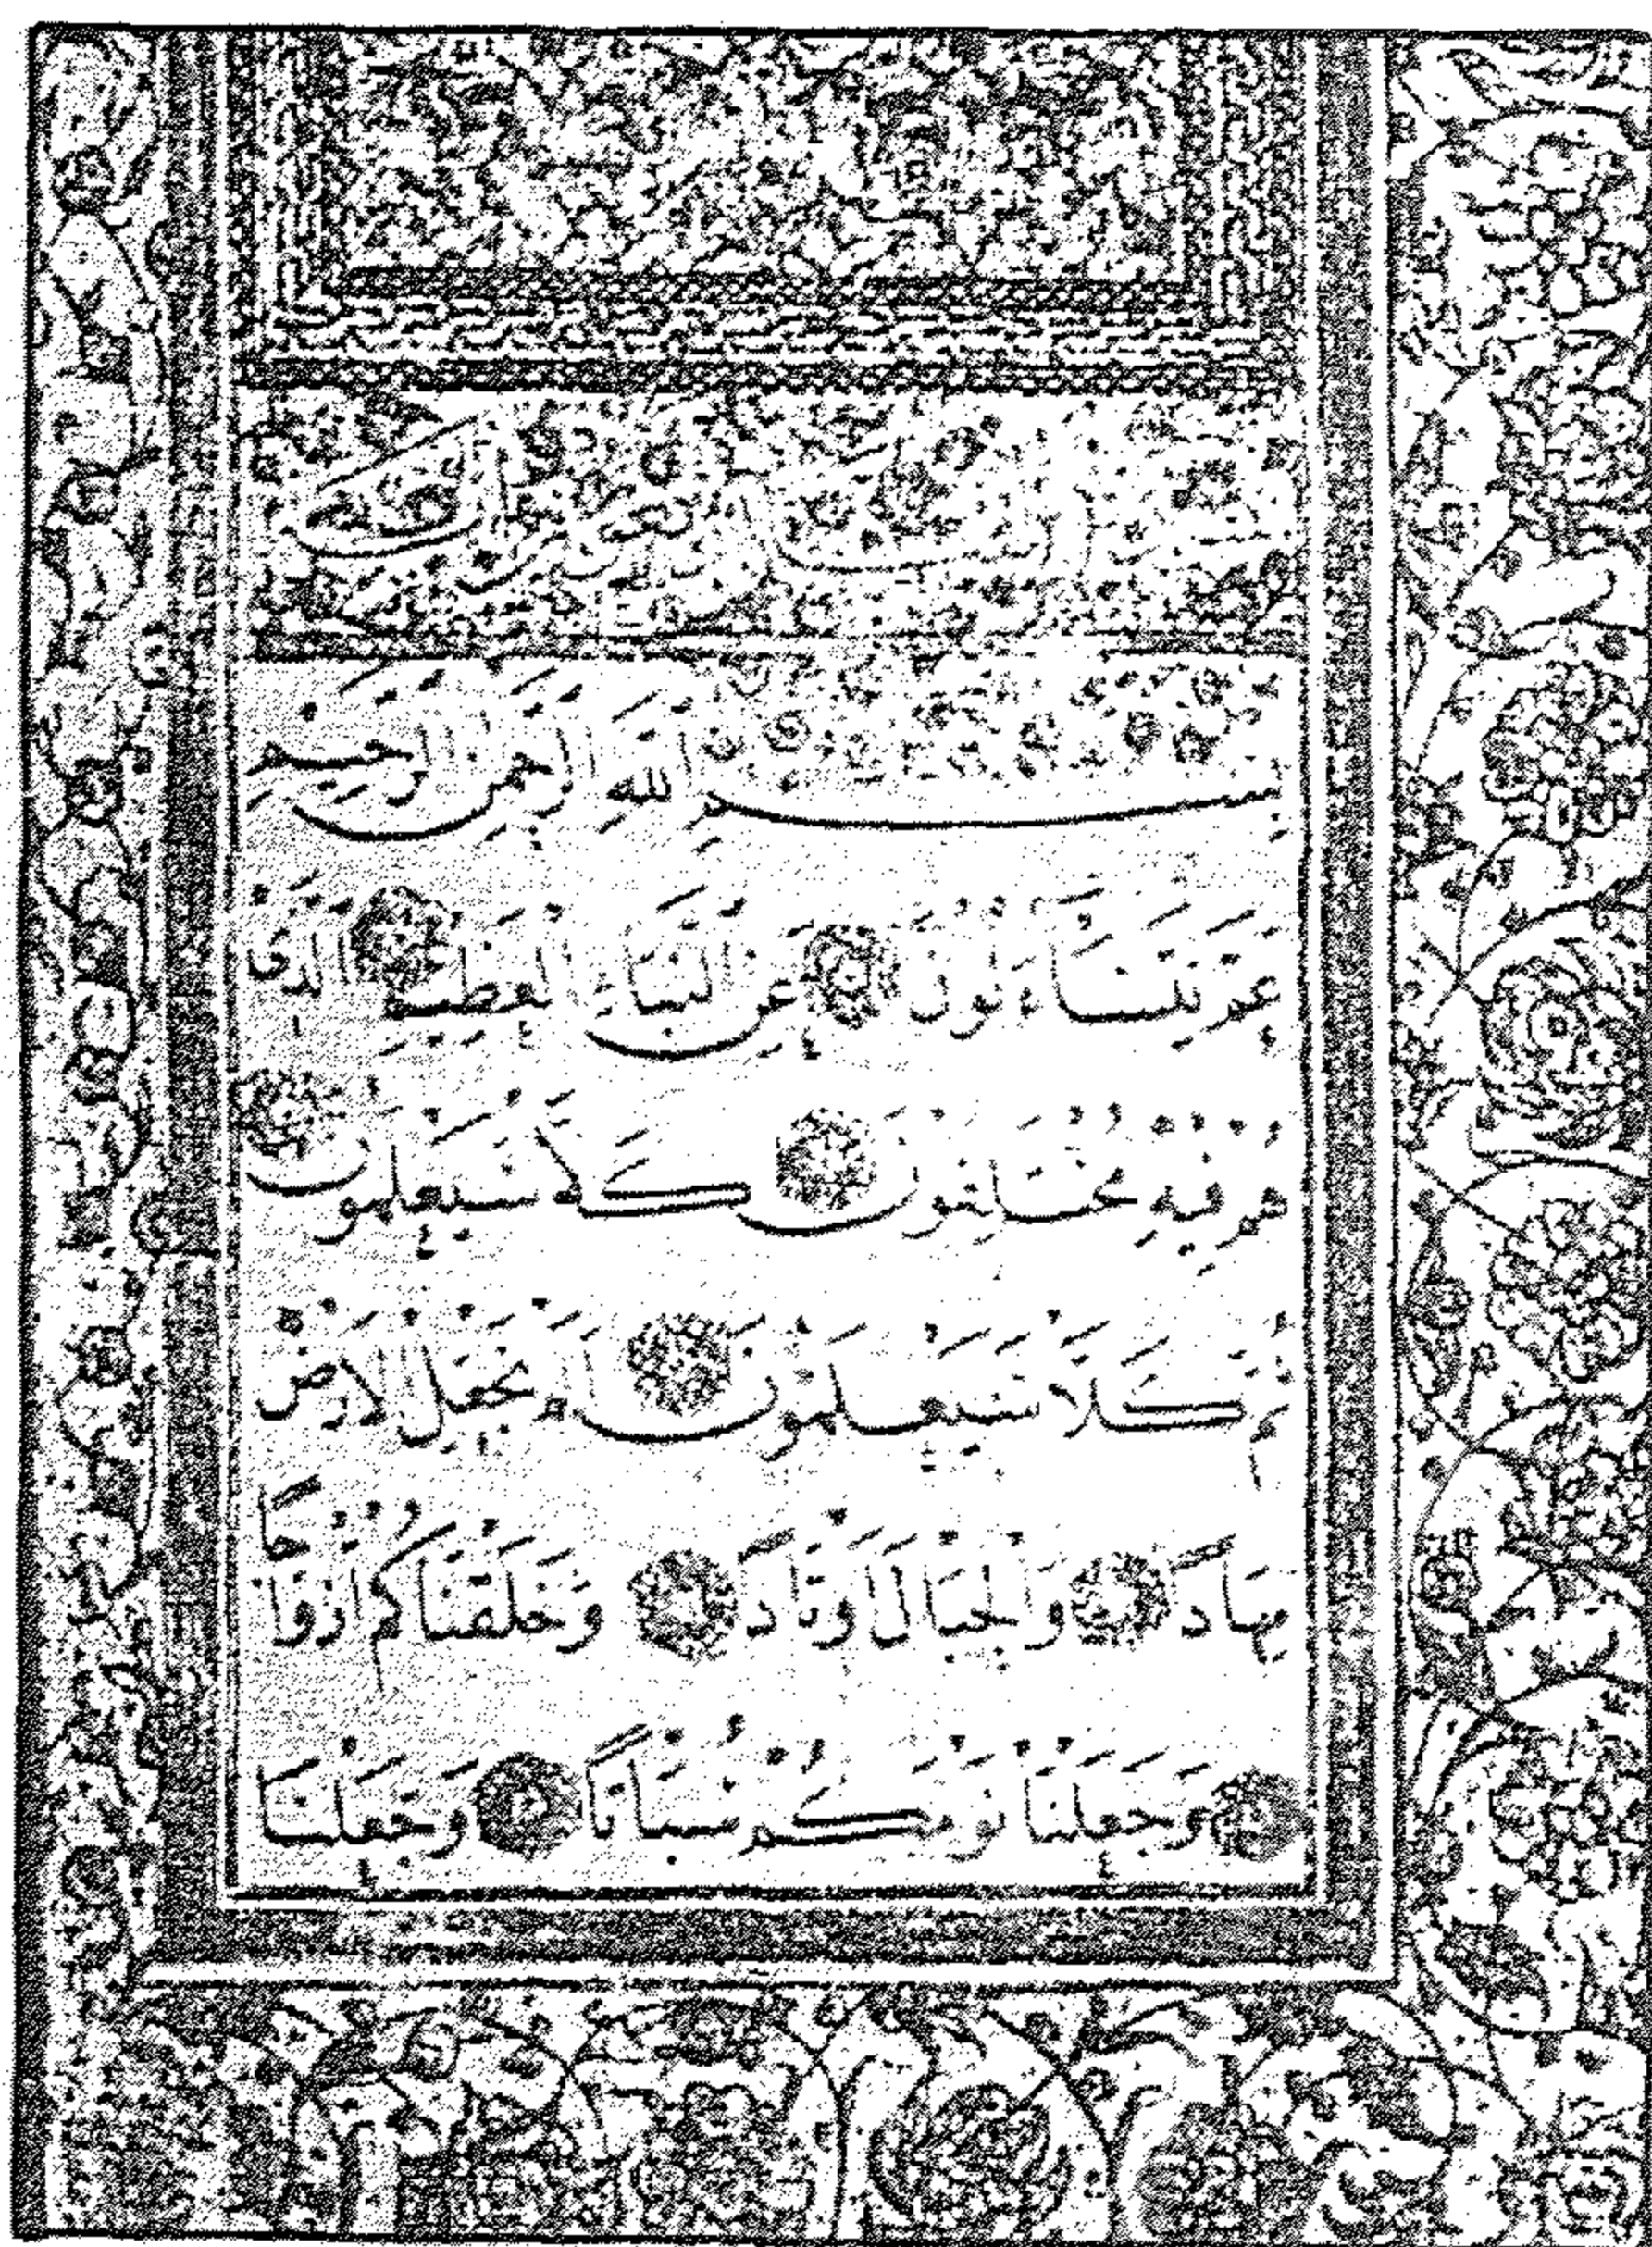 بِسْمِ اللَّهِ الرَّحْمَنِ الرَّحِيمِ
عَمَّ يَتَسَاءَلُونَ عَنِ النَّبَإِ الْعَظِيمِ الَّذِى
هُمْ فِيهِ مُخْتَلِفُونَ كَلَّا سَيَعْلَمُونَ
ثُمَّ كَلَّا سَيَعْلَمُونَ اَلَمْ نَجْعَلِ الْاَرْضَ
مِهَادًا وَالْجِبَالَ اَوْتَادًا وَخَلَقْنَاكُمْ اَزْوَاجًا
وَجَعَلْنَا نَوْمَكُمْ سُبَاتًا وَجَعَلْنَا